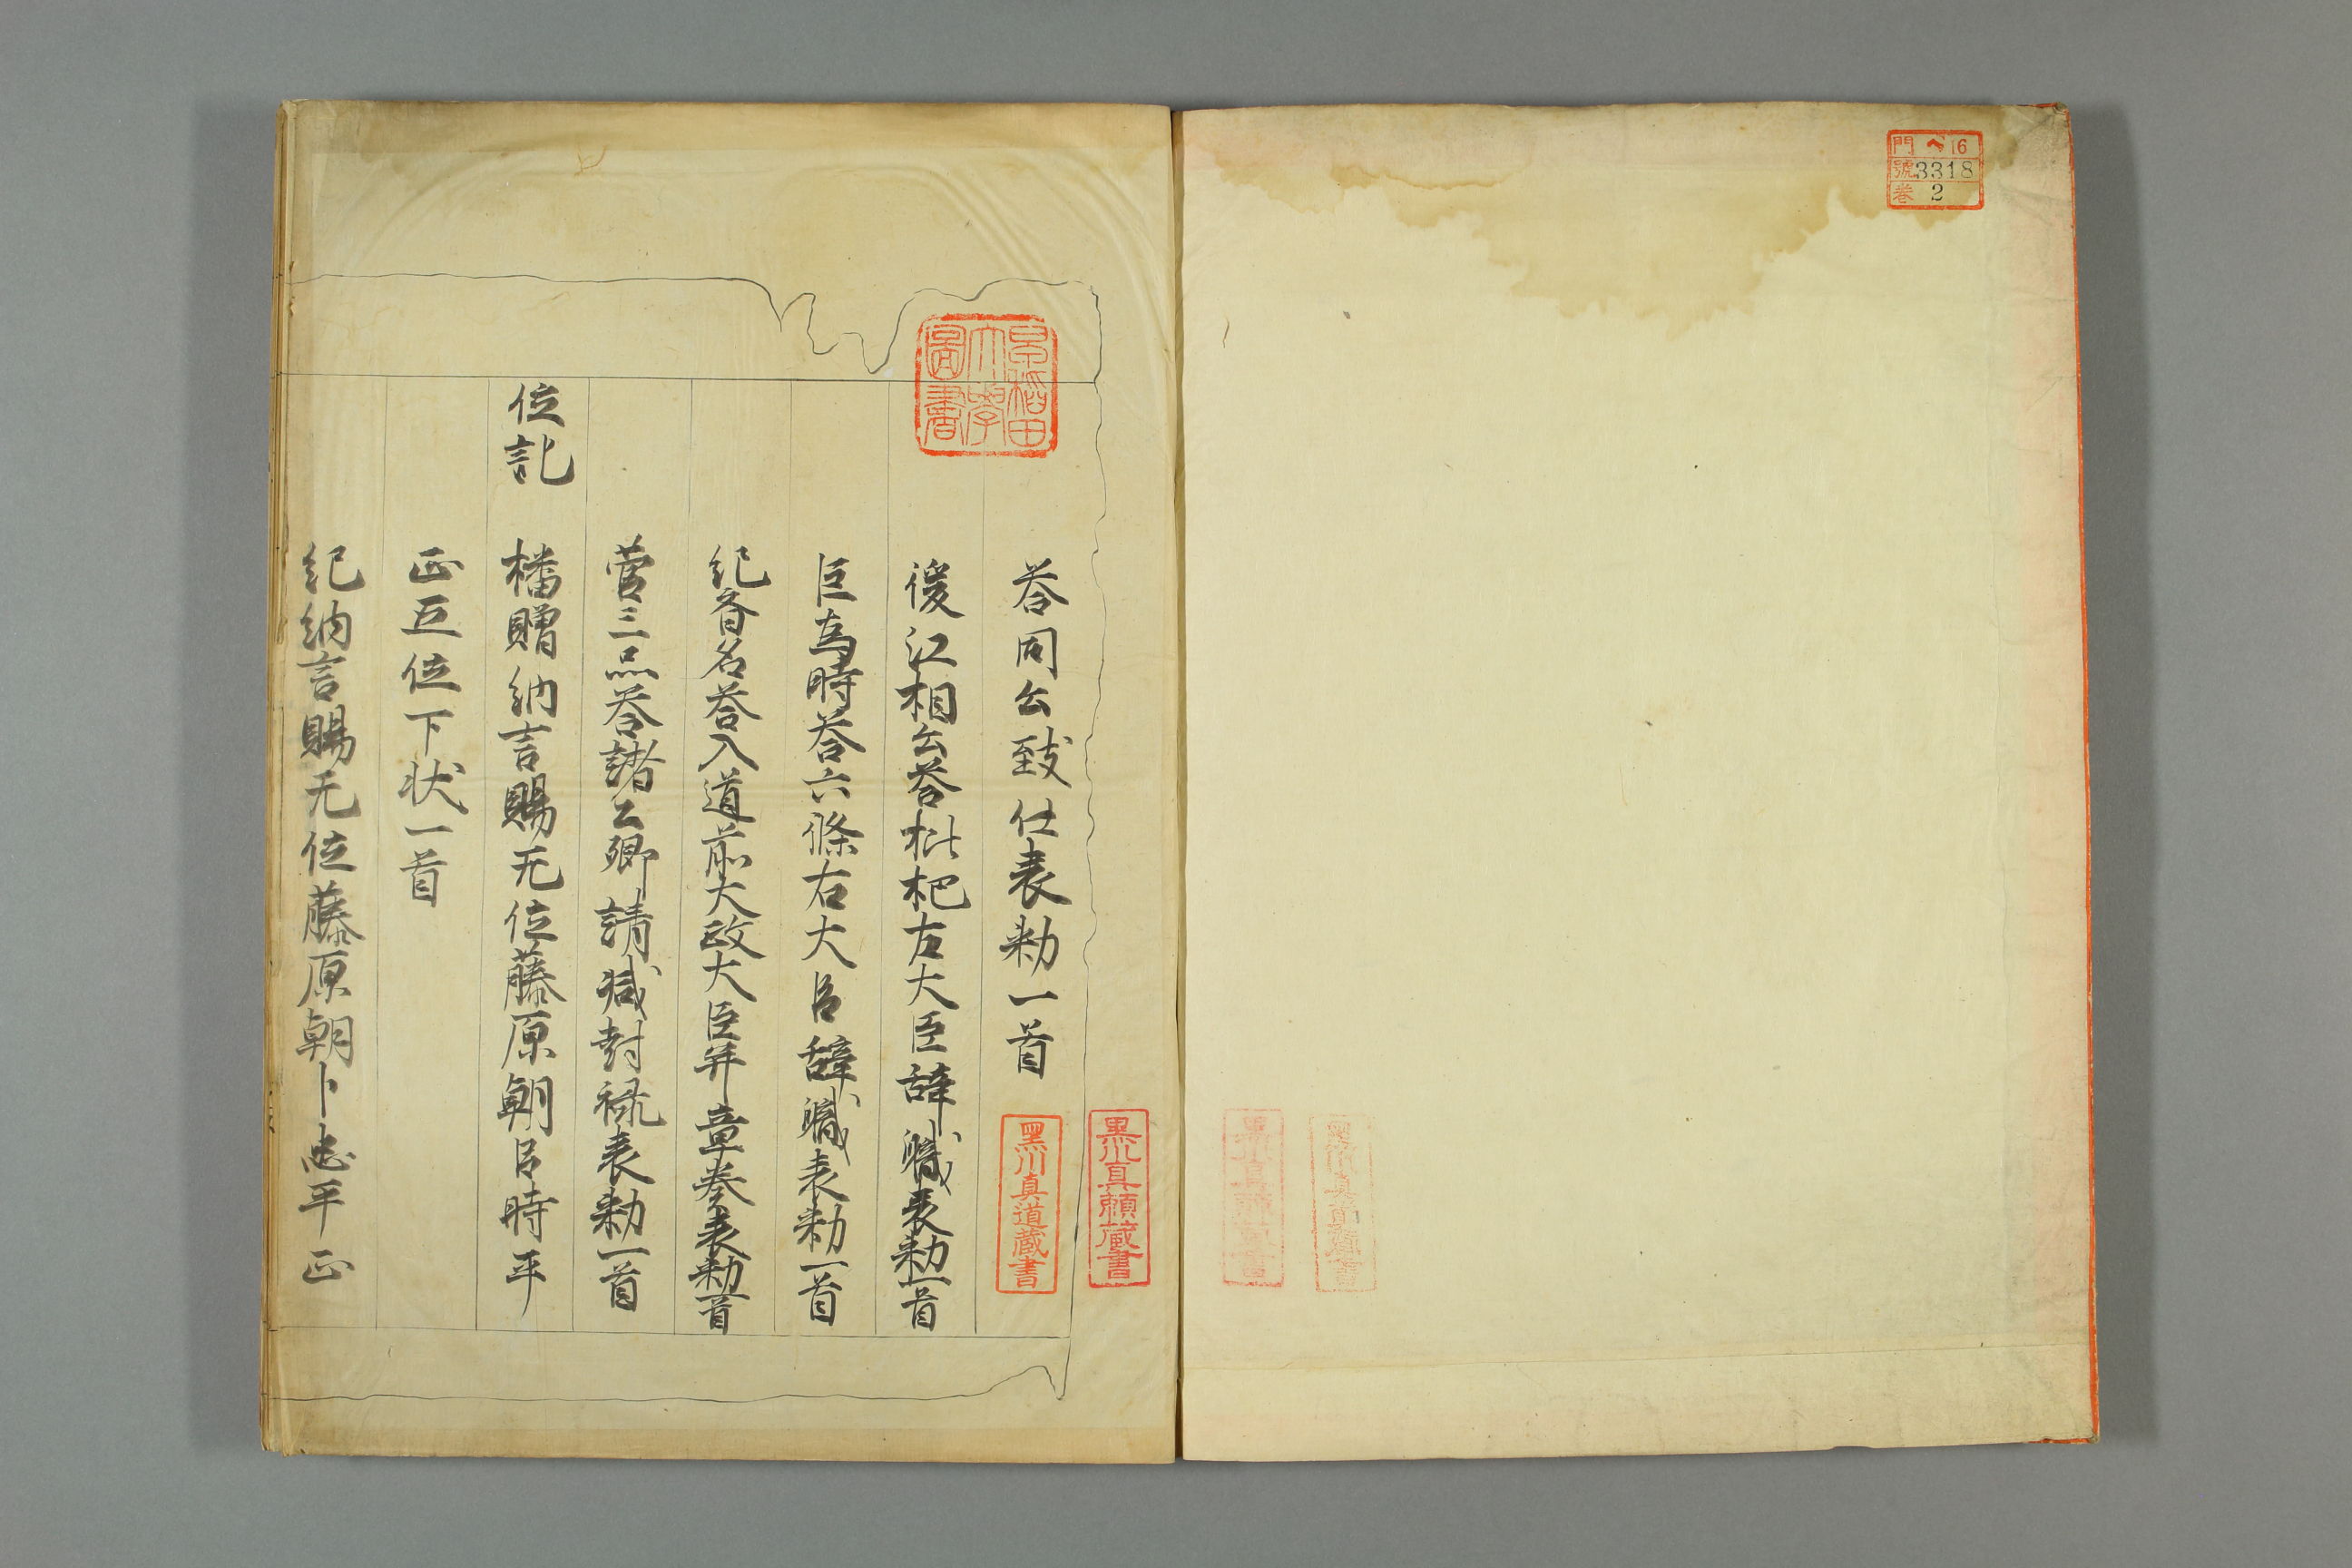 門 ヘ 16
號 3318
卷 2
早稲田大學圖書
黒川真頼蔵書
黒川真道蔵書
荅同公致仕表勅一首
後江相公荅枇杷左大臣辞職表勅一首
臣為時荅六條右大臣辞職表勅一首
紀斉名荅入道前大政大臣并章奏表勅一首
菅三品荅諸公卿請減封禄表勅一首
位記 橘贈納言賜无位藤原朝臣時平
正五位下状一首
紀納言賜无位藤原朝卜忠平正